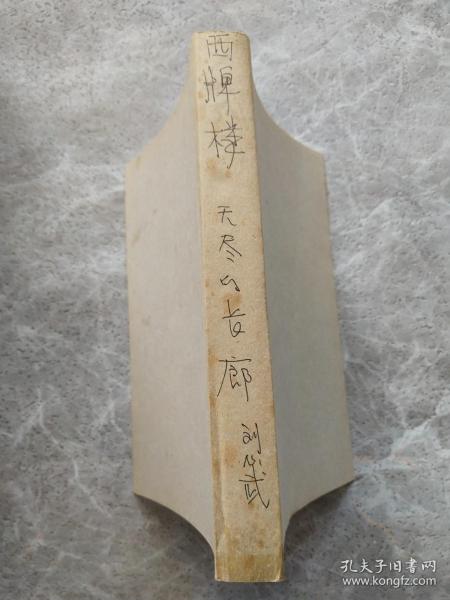 西牌楼
无尽的长廊
刘少武
孔夫子旧书网
www.kongfz.com